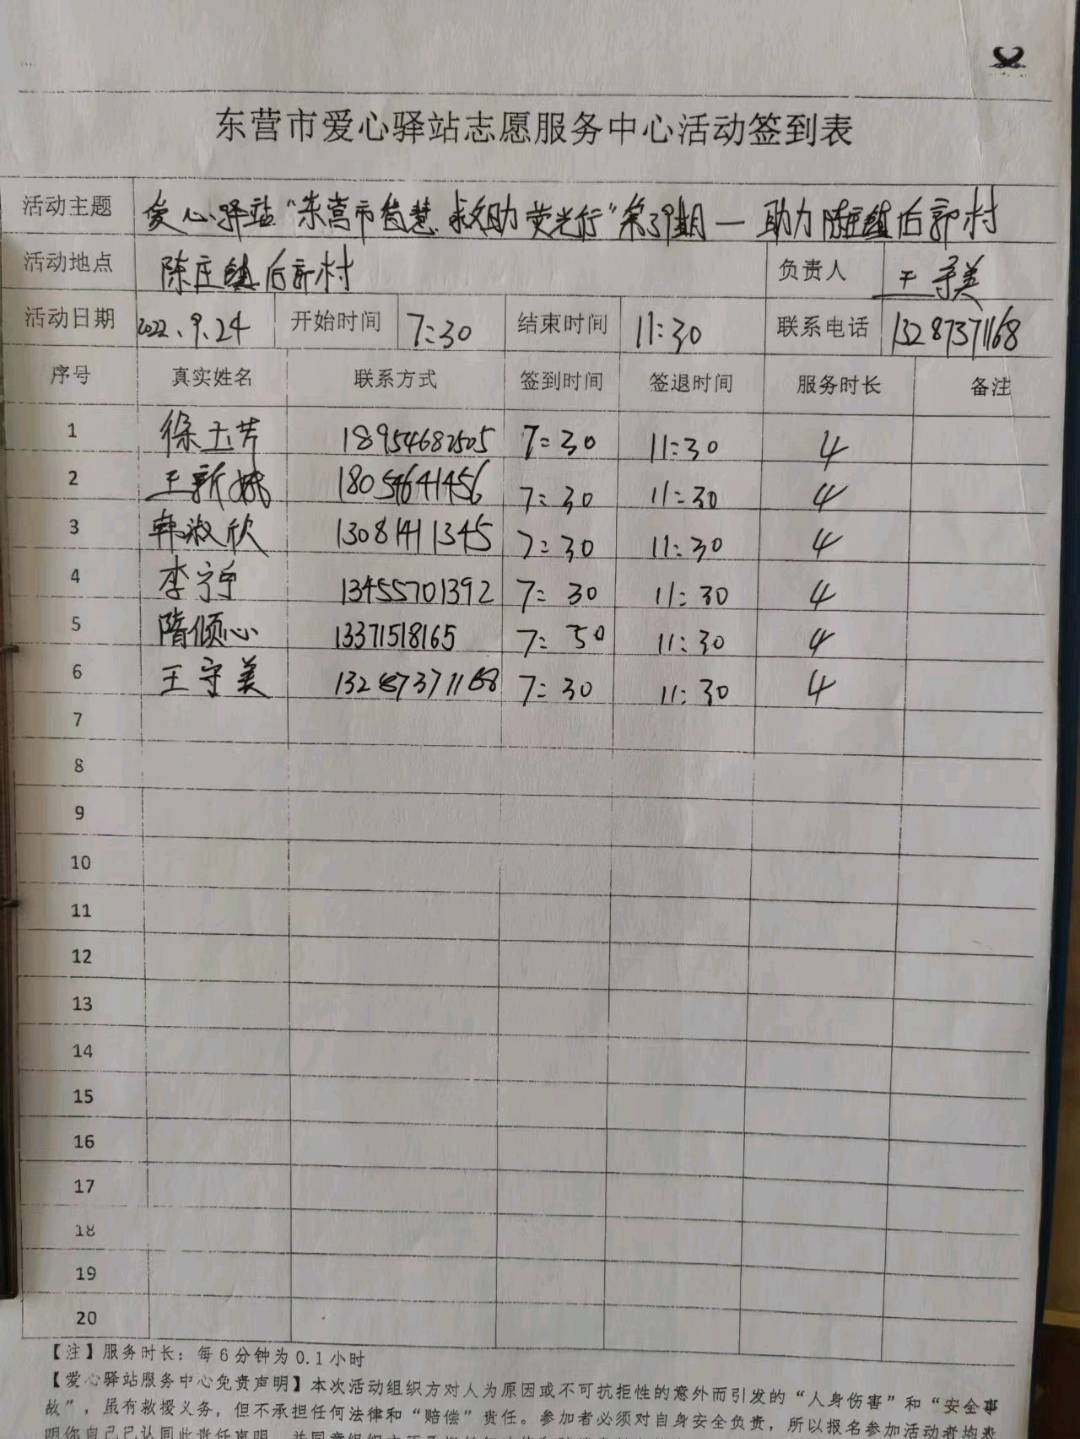 东营市爱心驿站志愿服务中心活动签到表
活动主题 爱心驿站“东营市智慧救助 荧光行”第39期—助力陈庄镇后郭村
活动地点 陈庄镇后郭村 负责人 王守美
活动日期 2022.9.24 开始时间 7:30 结束时间 11:30 联系电话 13287371168
序号 真实姓名 联系方式 签到时间 签退时间 服务时长 备注
1 徐玉芳 18954682505 7:30 11:30 4
2 王新娥 18054641456 7:30 11:30 4
3 韩淑欣 13081411345 7:30 11:30 4
4 李宁宁 13455701392 7:30 11:30 4
5 隋倾心 13371518165 7:50 11:30 4
6 王守美 13287371168 7:30 11:30 4
7
8
9
10
11
12
13
14
15
16
17
18
19
20
【注】服务时长：每6分钟为0.1小时
【爱心驿站服务中心免责声明】本次活动组织方对人为原因或不可抗拒性的意外而引发的“人身伤害”和“安全事
故”，虽有救援义务，但不承担任何法律和“赔偿”责任。参加者必须对自身安全负责，所以报名参加活动者均表
明你自己已认同此责任声明，并同意组织方不承担任何